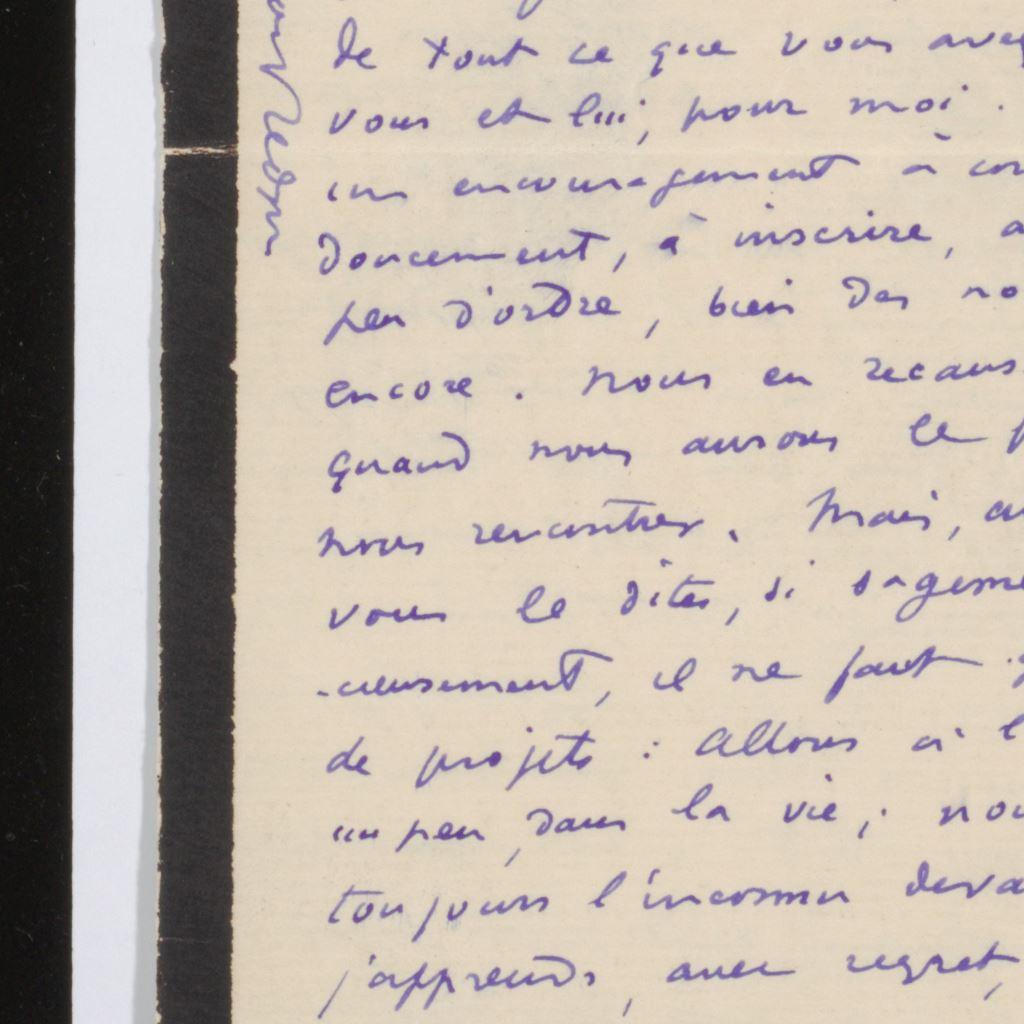 de tout ce que vous avez
vous et lui, pour moi.
un encouragement à con
doucement, à inscrire, a
peu d'ordre, bien des no
encore. Nous en recaus
quand nous aurons le p
nous rencontrer. Mais, au
vous le dites, si sageme
-cieusement, il ne faut
de projets : Allons à l
un peu, dans la vie ; nou
toujours l'inconnu deva
j'apprends, avec regret,